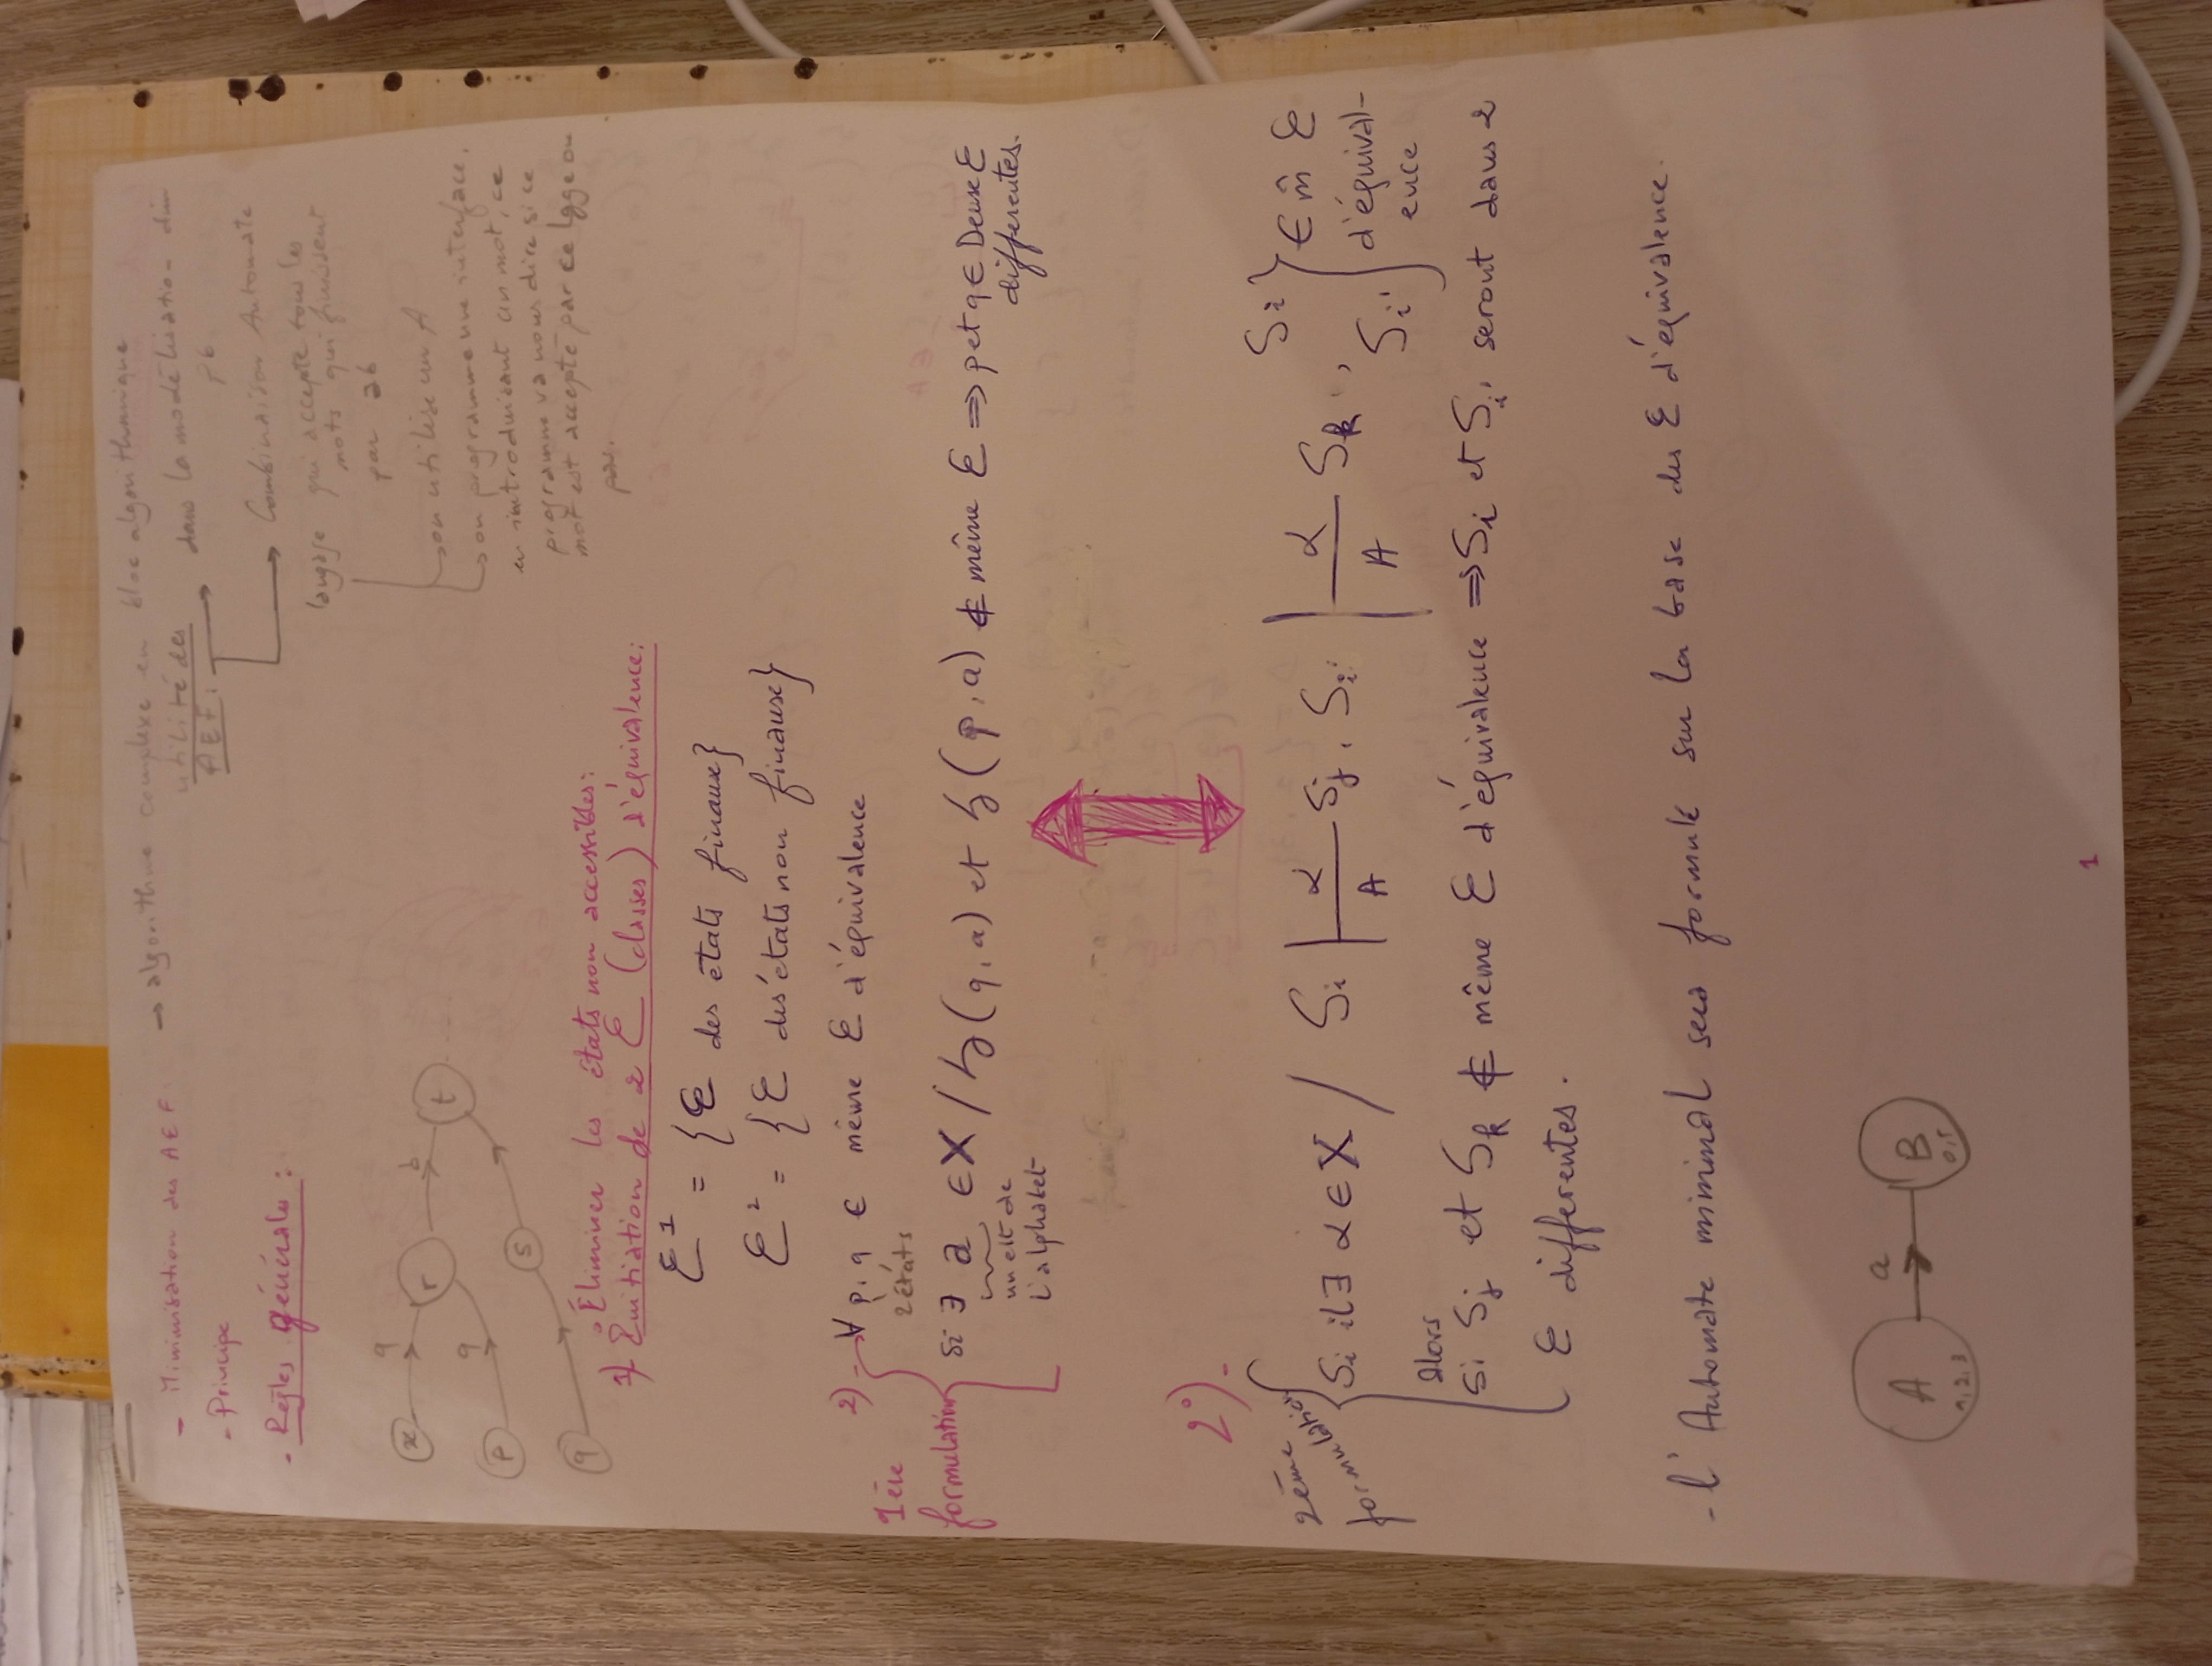 - Minimisation des AEF:
→ algorithme complexe en bloc algorithmique
- Principe
utilité des
AEF:
dans la modélisation d'un
pb
Combinaison Automate
- Règles générales :
langage qui accepte tous les
mots qui finissent
par ab
→ on utilise un A
→ on programme une interface,
en introduisant un mot, ce
programme va nous dire si ce
mot est accepté par ce lgge ou
pas.
x a r b t ....
p a
s
q
. Éliminer les états non accessibles:
1) Initiation de 2 E (classes) d'équivalence:
E¹ = {E des états finaux}
E² = {E des états non finaux}
2) - ∀ p, q ∈ même E d'équivalence
2 états
1ère
formulation
si ∃ a ∈ X / δ(q, a) et δ(p, a) ∉ même E ⇒ p et q ∈ Deux E
differentes.
un elt de
l'alphabet
2°) -
2ème
formulation
Si il ∃ α ∈ X / Si |α/A Sj, Si' |α/A Sk, Si Si' } ∈ m̂ E
d'équival-
ence
alors
si Sj et Sk ∉ même E d'équivalence ⇒ Si et Si' seront dans 2
E differentes.
- l'Automate minimal sera formulé sur la base des E d'équivalence.
A a B
1,2,3
1